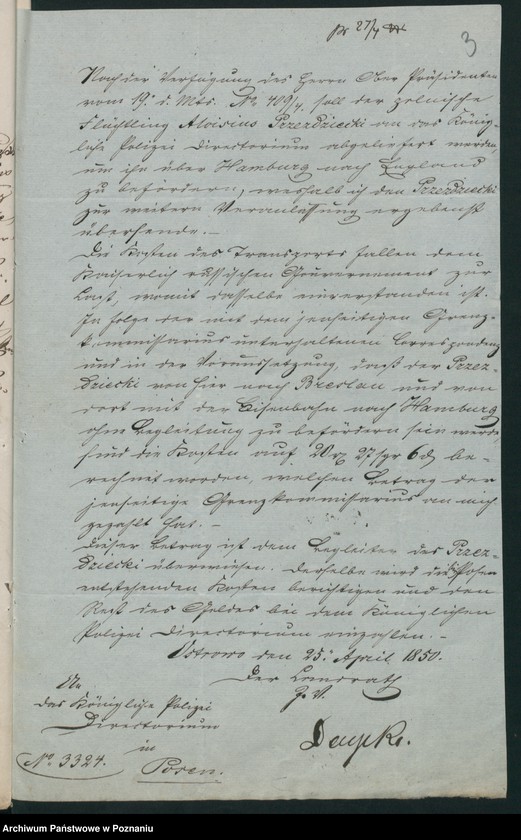 27/4
3
Nach der Verfügung des Herrn Ober Präsidenten
vom 19. d. Mts. No 409/4. soll der polnische
Flüchtling Aloisius Przezdziecki an das König-
liche Polizei Directorium abgeliefert werden,
um ihn über Hamburg nach England
zu befördern, weshalb ich den Przezdziecki
zur weitern Veranlassung ergebenst
übersende. –
Die Kosten des Transports fallen dem
Kaiserlich russischen Gouvernement zur
Last, womit dasselbe einverstanden ist.
In folge der mit dem jenseitigen Grenz-
kommissarius unterhaltenen Correspondenz
und in der Voraussetzung, daß der Przez-
dziecki von hier nach Breslau und von
dort mit der Eisenbahn nach Hamburg
ohne Begleitung zu befördern sein werde
sind die Kosten auf 27 sgr 6 d be-
rechnet worden, welchen Betrag der
jenseitige Grenzkommissarius an mich
gezahlt hat. –
Dieser Betrag ist dem Begleiter des Przez-
dziecki überwiesen. Derselbe wird die Posen
entstehenden Kosten berichtigen und den
Rest des Geldes bei dem Königlichen
Polizei Directorium einzahlen. –
Ostrowo den 25. April 1850.
Der Landrath
An
das Königliche Polizei
Directorium
in
Posen.
No 3324.
Archiwum Państwowe w Poznaniu